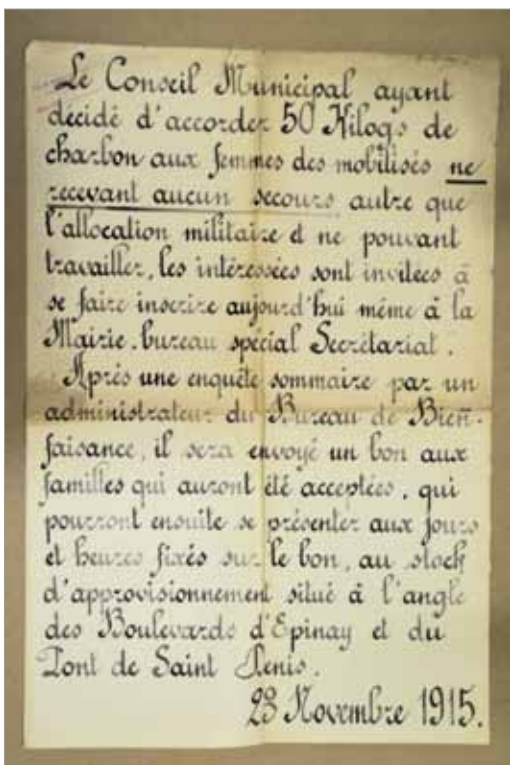 Le Conseil Municipal ayant
décidé d'accorder 50 Kilogs de
charbon aux femmes des mobilisés ne
recevant aucun secours autre que
l'allocation militaire et ne pouvant
travailler, les intéressées sont invitées à
se faire inscrire aujourd'hui même à la
Mairie. bureau spécial Secrétariat.
Après une enquête sommaire par un
administrateur du Bureau de Bien-
faisance, il sera envoyé un bon aux
familles qui auront été acceptées, qui
pourront ensuite se présenter aux jours
et heures fixés sur le bon, au stock
d'approvisionnement situé à l'angle
des Boulevards d'Epinay et du
Pont de Saint Denis.
23 Novembre 1915.